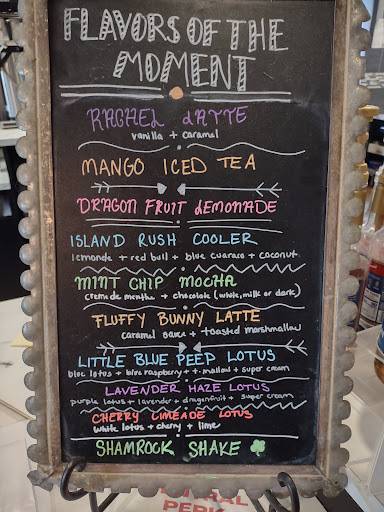 FLAVORS OF THE
MOMENT
RACHEL LATTE
vanilla + caramel
MANGO ICED TEA
DRAGON FRUIT LEMONADE
ISLAND RUSH COOLER
lemonade + red bull + blue curacao + coconut
MINT CHIP MOCHA
creme de menthe + chocolate (white, milk or dark)
FLUFFY BUNNY LATTE
caramel sauce + toasted marshmallow
LITTLE BLUE PEEP LOTUS
blue lotus + blue raspberry + t. mallow + super cream
LAVENDER HAZE LOTUS
purple lotus + lavender + dragonfruit + super cream
CHERRY LIMEADE LOTUS
white lotus + cherry + lime
SHAMROCK SHAKE
PERK